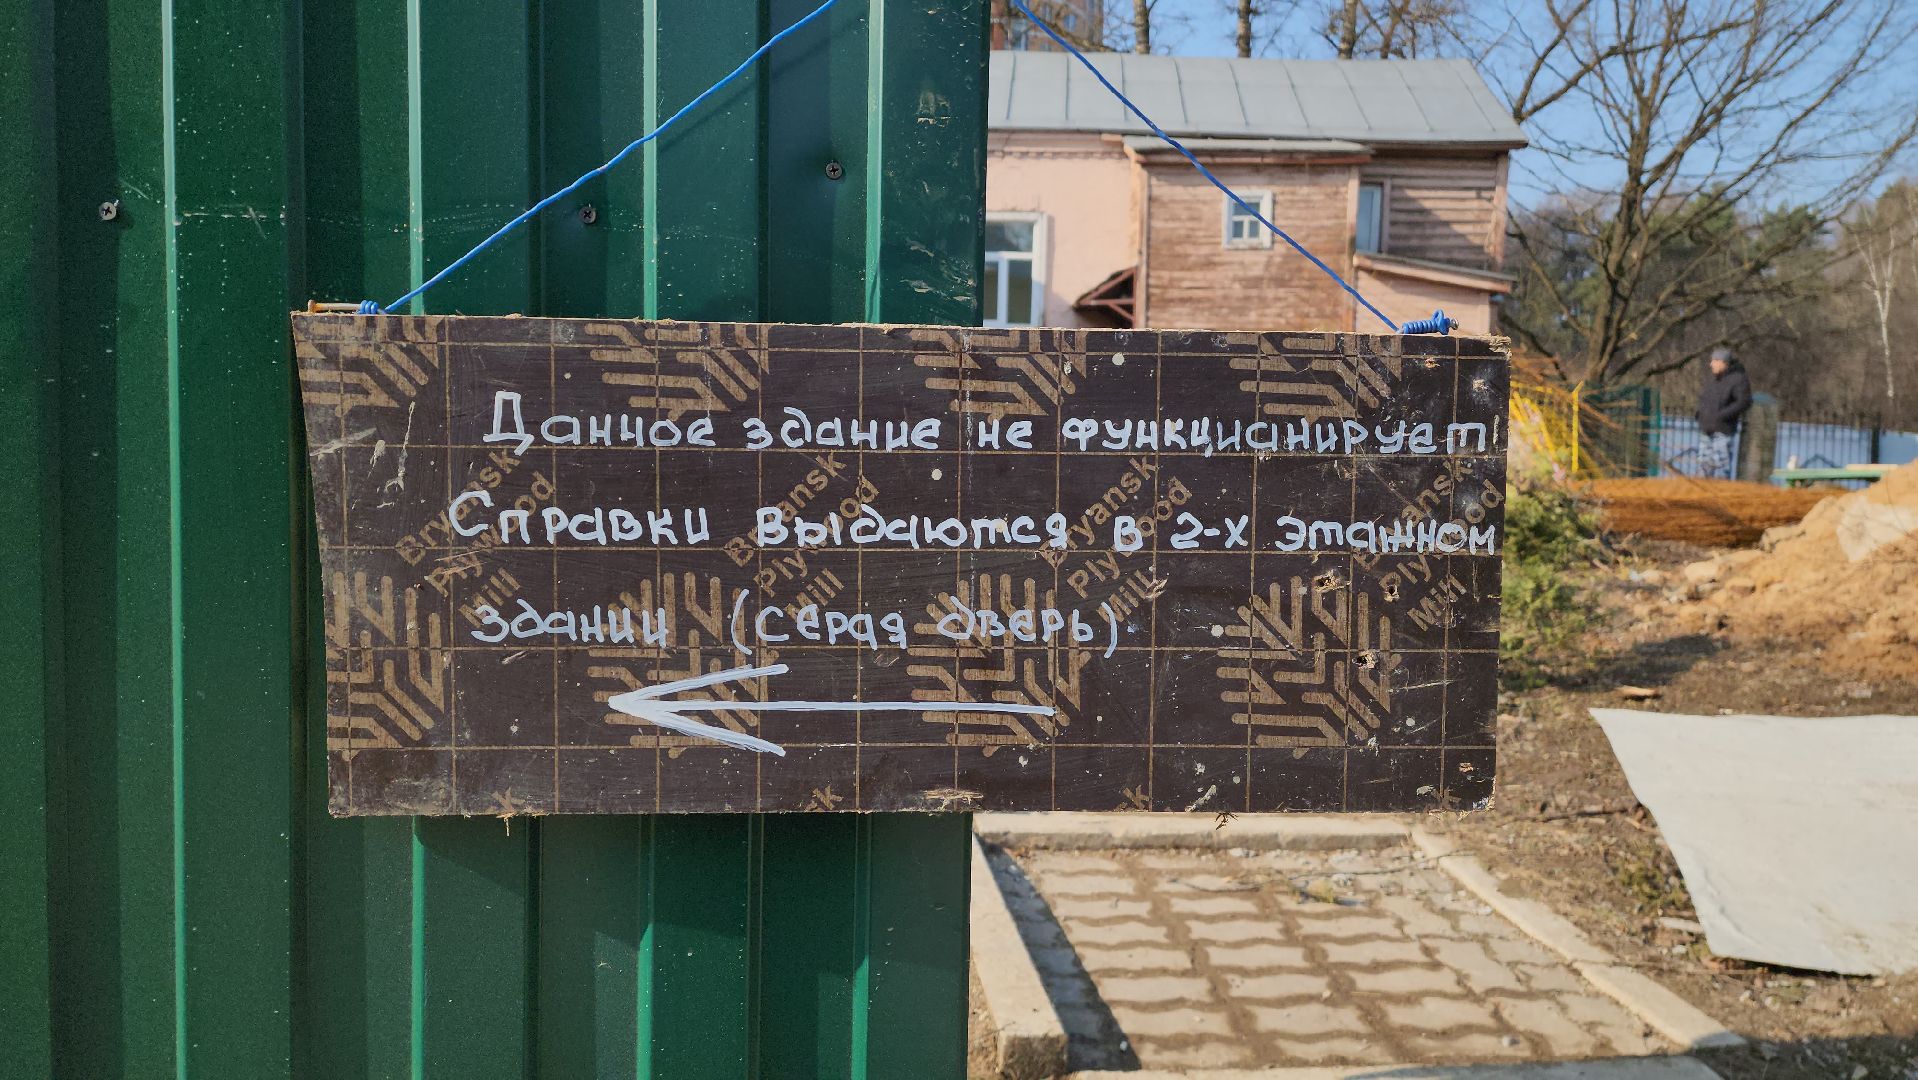 Данное здание не функцианирует!
Справки выдаются в 2-х этажном
здании (серая дверь)
Bryansk
Plywood
Mill
Bryansk
Plywood
Mill
Bryansk
Plywood
Mill
Bryansk
Plywood
Mill